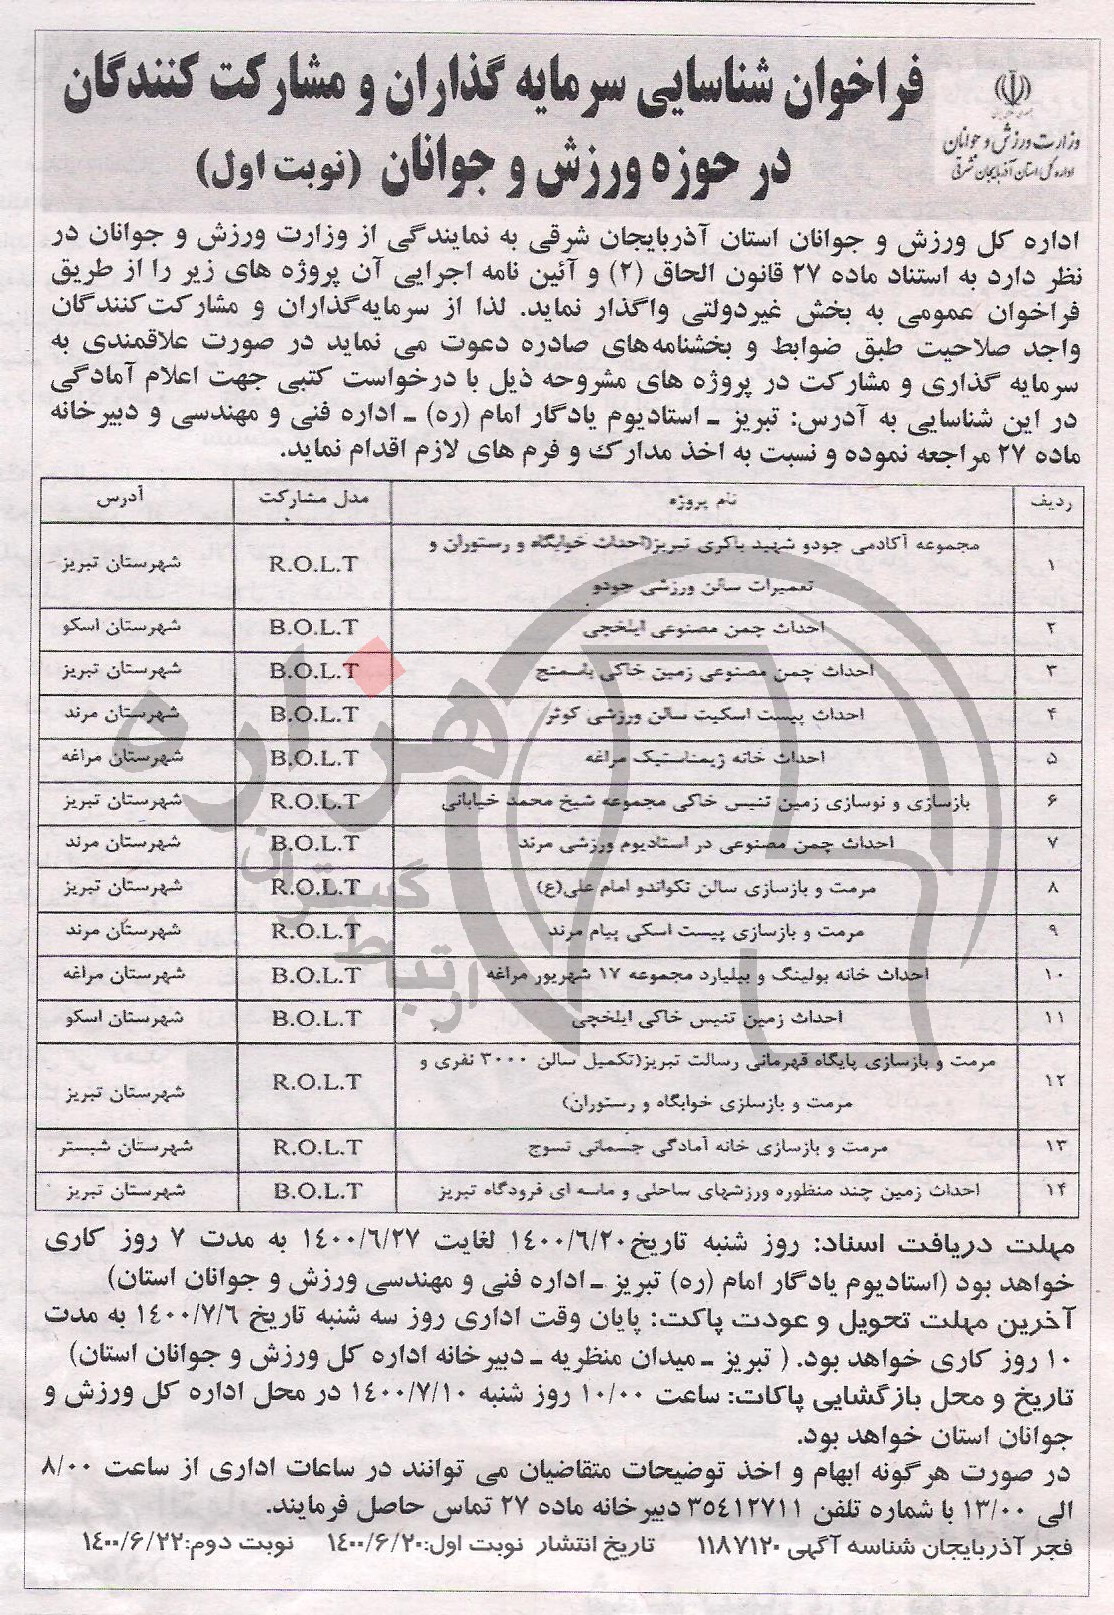 فراخوان شناسایی سرمایه گذاران و مشارکت کنندگان
در حوزه ورزش و جوانان (نوبت اول)
وزارت ورزش و جوانان
اداره کل استان آذربایجان شرقی
اداره کل ورزش و جوانان استان آذربایجان شرقی به نمایندگی از وزارت ورزش و جوانان در
نظر دارد به استناد ماده ۲۷ قانون الحاق (۲) و آئین نامه اجرایی آن پروژه های زیر را از طریق
فراخوان عمومی به بخش غیردولتی واگذار نماید. لذا از سرمایه‌گذاران و مشارکت‌کنندگان
واجد صلاحیت طبق ضوابط و بخشنامه‌های صادره دعوت می نماید در صورت علاقمندی به
سرمایه گذاری و مشارکت در پروژه های مشروحه ذیل با درخواست کتبی جهت اعلام آمادگی
در این شناسایی به آدرس: تبریز ـ استادیوم یادگار امام (ره) ـ اداره فنی و مهندسی و دبیرخانه
ماده ۲۷ مراجعه نموده و نسبت به اخذ مدارك و فرم های لازم اقدام نماید.
ردیف نام پروژه مدل مشارکت آدرس
۱ مجموعه آکادمی جودو شهید باکری تبریز(احداث خوابگاه و رستوران و تعمیرات سالن ورزشی جودو R.O.L.T شهرستان تبریز
۲ احداث چمن مصنوعی ایلخچی B.O.L.T شهرستان اسکو
۳ احداث چمن مصنوعی زمین خاکی باسمنج B.O.L.T شهرستان تبریز
۴ احداث پیست اسکیت سالن ورزشی کوثر B.O.L.T شهرستان مرند
۵ احداث خانه ژیمناستیک مراغه B.O.L.T شهرستان مراغه
۶ بازسازی و نوسازی زمین تنیس خاکی مجموعه شیخ محمد خیابانی R.O.L.T شهرستان تبریز
۷ احداث چمن مصنوعی در استادیوم ورزشی مرند B.O.L.T شهرستان مرند
۸ مرمت و بازسازی سالن تکواندو امام علی(ع) R.O.L.T شهرستان تبریز
۹ مرمت و بازسازی پیست اسکی پیام مرند R.O.L.T شهرستان مرند
۱۰ احداث خانه بولینگ و بیلیارد مجموعه ۱۷ شهریور مراغه B.O.L.T شهرستان مراغه
۱۱ احداث زمین تنیس خاکی ایلخچی B.O.L.T شهرستان اسکو
۱۲ مرمت و بازسازی پایگاه قهرمانی رسالت تبریز(تکمیل سالن ۳۰۰۰ نفری و مرمت و بازسلزی خوابگاه و رستوران) R.O.L.T شهرستان تبریز
۱۳ مرمت و بازسازی خانه آمادگی جسمانی تسوج R.O.L.T شهرستان شبستر
۱۴ احداث زمین چند منظوره ورزشهای ساحلی و ماسه ای فرودگاه تبریز B.O.L.T شهرستان تبریز
مهلت دریافت اسناد: روز شنبه تاریخ۱۴۰۰/۶/۲۰ لغایت ۱۴۰۰/۶/۲۷ به مدت ۷ روز کاری
خواهد بود (استادیوم یادگار امام (ره) تبریز ـ اداره فنی و مهندسی ورزش و جوانان استان)
آخرین مهلت تحویل و عودت پاکت: پایان وقت اداری روز سه شنبه تاریخ ۱۴۰۰/۷/۶ به مدت
۱۰ روز کاری خواهد بود. ( تبریز ـ میدان منظریه ـ دبیرخانه اداره کل ورزش و جوانان استان)
تاریخ و محل بازگشایی پاکات: ساعت ۱۰/۰۰ روز شنبه ۱۴۰۰/۷/۱۰ در محل اداره کل ورزش و
جوانان استان خواهد بود.
در صورت هرگونه ابهام و اخذ توضیحات متقاضیان می توانند در ساعات اداری از ساعت ۸/۰۰
الی ۱۳/۰۰ با شماره تلفن ۳۵۴۱۲۷۱۱ دبیرخانه ماده ۲۷ تماس حاصل فرمایند.
فجر آذربایجان شناسه آگهی ۱۱۸۷۱۲۰ تاریخ انتشار نوبت اول:۱۴۰۰/۶/۲۰ نوبت دوم:۱۴۰۰/۶/۲۲
هزاره
ارتباط گستران